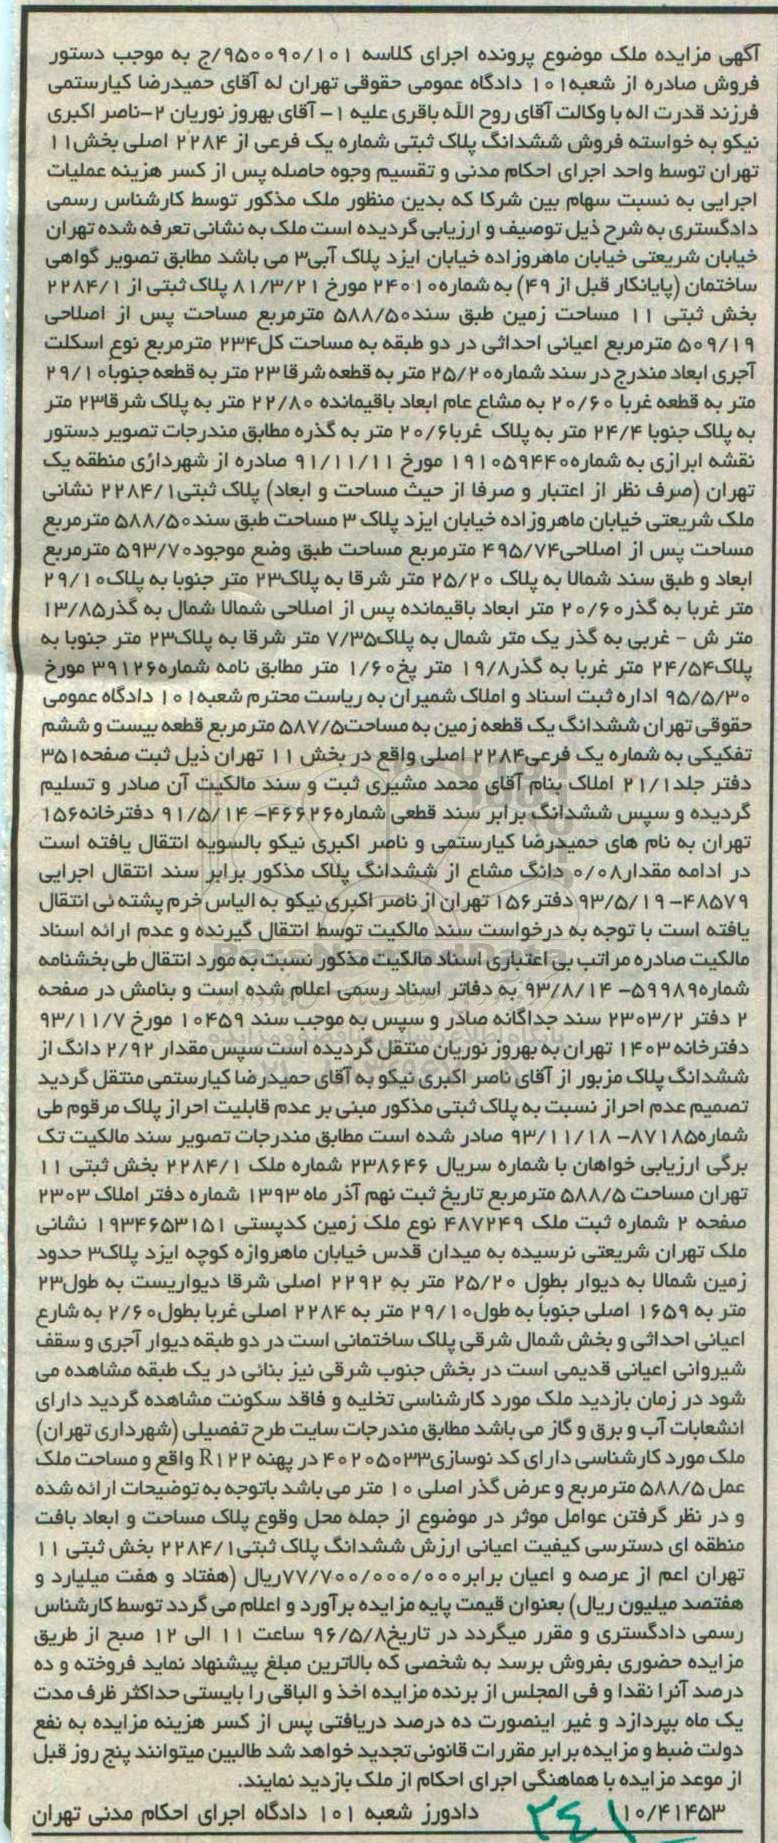 آگهی مزایده ملک موضوع پرونده اجرای کلاسه ۹۵۰۰۹۰/۱۰۱/ج به موجب دستور
فروش صادره از شعبه۱۰۱ دادگاه عمومی حقوقی تهران له آقای حمیدرضا کیارستمی
فرزند قدرت اله با وکالت آقای روح الله باقری علیه ۱- آقای بهروز نوریان ۲-ناصر اکبری
نیکو به خواسته فروش ششدانگ پلاک ثبتی شماره یک فرعی از ۲۲۸۴ اصلی بخش۱۱
تهران توسط واحد اجرای احکام مدنی و تقسیم وجوه حاصله پس از کسر هزینه عملیات
اجرایی به نسبت سهام بین شرکا که بدین منظور ملک مذکور توسط کارشناس رسمی
دادگستری به شرح ذیل توصیف و ارزیابی گردیده است ملک به نشانی تعرفه شده تهران
خیابان شریعتی خیابان ماهروزاده خیابان ایزد پلاک آبی۳ می باشد مطابق تصویر گواهی
ساختمان (پایانکار قبل از ۴۹) به شماره۲۴۰۱۰ مورخ ۸۱/۳/۲۱ پلاک ثبتی از ۲۲۸۴/۱
بخش ثبتی ۱۱ مساحت زمین طبق سند۵۸۸/۵۰ مترمربع مساحت پس از اصلاحی
۵۰۹/۱۹ مترمربع اعیانی احداثی در دو طبقه به مساحت کل۲۳۴ مترمربع نوع اسکلت
آجری ابعاد مندرج در سند شماره۲۵/۲۰ متر به قطعه شرقا ۲۳ متر به قطعه جنوبا۲۹/۱۰
متر به قطعه غربا ۲۰/۶۰ به مشاع عام ابعاد باقیمانده ۲۲/۸۰ متر به پلاک شرقا۲۳ متر
به پلاک جنوبا ۲۴/۴ متر به پلاک غربا۲۰/۶ متر به گذره مطابق مندرجات تصویر دستور
نقشه ابرازی به شماره۱۹۱۰۵۹۴۴۰ مورخ ۹۱/۱۱/۱۱ صادره از شهرداری منطقه یک
تهران (صرف نظر از اعتبار و صرفا از حیث مساحت و ابعاد) پلاک ثبتی۲۲۸۴/۱ نشانی
ملک شریعتی خیابان ماهروزاده خیابان ایزد پلاک ۳ مساحت طبق سند۵۸۸/۵۰ مترمربع
مساحت پس از اصلاحی۴۹۵/۷۴ مترمربع مساحت طبق وضع موجود۵۹۳/۷۰ مترمربع
ابعاد و طبق سند شمالا به پلاک ۲۵/۲۰ متر شرقا به پلاک۲۳ متر جنوبا به پلاک۲۹/۱۰
متر غربا به گذر۲۰/۶۰ متر ابعاد باقیمانده پس از اصلاحی شمالا شمال به گذر۱۳/۸۵
متر ش - غربی به گذر یک متر شمال به پلاک۷/۳۵ متر شرقا به پلاک۲۳ متر جنوبا به
پلاک۲۴/۵۴ متر غربا به گذر۱۹/۸ متر پخ۱/۶۰ متر مطابق نامه شماره۳۹۱۲۶ مورخ
۹۵/۵/۳۰ اداره ثبت اسناد و املاک شمیران به ریاست محترم شعبه۱۰۱ دادگاه عمومی
حقوقی تهران ششدانگ یک قطعه زمین به مساحت۵۸۷/۵ مترمربع قطعه بیست و ششم
تفکیکی به شماره یک فرعی۲۲۸۴ اصلی واقع در بخش ۱۱ تهران ذیل ثبت صفحه۳۵۱
دفتر جلد۲۱/۱ املاک بنام آقای محمد مشیری ثبت و سند مالکیت آن صادر و تسلیم
گردیده و سپس ششدانگ برابر سند قطعی شماره۴۶۶۲۶- ۹۱/۵/۱۴ دفترخانه۱۵۶
تهران به نام های حمیدرضا کیارستمی و ناصر اکبری نیکو بالسویه انتقال یافته است
در ادامه مقدار۰/۰۸ دانگ مشاع از ششدانگ پلاک مذکور برابر سند انتقال اجرایی
۴۸۵۷۹- ۹۳/۵/۱۹ دفتر۱۵۶ تهران از ناصر اکبری نیکو به الیاس خرم پشته ئی انتقال
یافته است با توجه به درخواست سند مالکیت توسط انتقال گیرنده و عدم ارائه اسناد
مالکیت صادره مراتب بی اعتباری اسناد مالکیت مذکور نسبت به مورد انتقال طی بخشنامه
شماره۵۹۹۸۹- ۹۳/۸/۱۴ به دفاتر اسناد رسمی اعلام شده است و بنامش در صفحه
۲ دفتر ۲۳۰۳/۲ سند جداگانه صادر و سپس به موجب سند ۱۰۴۵۹ مورخ ۹۳/۱۱/۷
دفترخانه ۱۴۰۳ تهران به بهروز نوریان منتقل گردیده است سپس مقدار ۲/۹۲ دانگ از
ششدانگ پلاک مزبور از آقای ناصر اکبری نیکو به آقای حمیدرضا کیارستمی منتقل گردید
تصمیم عدم احراز نسبت به پلاک ثبتی مذکور مبنی بر عدم قابلیت احراز پلاک مرقوم طی
شماره۸۷۱۸۵- ۹۳/۱۱/۱۸ صادر شده است مطابق مندرجات تصویر سند مالکیت تک
برگی ارزیابی خواهان با شماره سریال ۲۳۸۶۴۶ شماره ملک ۲۲۸۴/۱ بخش ثبتی ۱۱
تهران مساحت ۵۸۸/۵ مترمربع تاریخ ثبت نهم آذر ماه ۱۳۹۳ شماره دفتر املاک ۲۳۰۳
صفحه ۲ شماره ثبت ملک ۴۸۷۲۴۹ نوع ملک زمین کدپستی ۱۹۳۴۶۵۳۱۵۱ نشانی
ملک تهران شریعتی نرسیده به میدان قدس خیابان ماهروازه کوچه ایزد پلاک۳ حدود
زمین شمالا به دیوار بطول ۲۵/۲۰ متر به ۲۲۹۲ اصلی شرقا دیواریست به طول۲۳
متر به ۱۶۵۹ اصلی جنوباً به طول۲۹/۱۰ متر به ۲۲۸۴ اصلی غربا بطول۲/۶۰ به شارع
اعیانی احداثی و بخش شمال شرقی پلاک ساختمانی است در دو طبقه دیوار آجری و سقف
شیروانی اعیانی قدیمی است در بخش جنوب شرقی نیز بنائی در یک طبقه مشاهده می
شود در زمان بازدید ملک مورد کارشناسی تخلیه و فاقد سکونت مشاهده گردید دارای
انشعابات آب و برق و گاز می باشد مطابق مندرجات سایت طرح تفصیلی (شهرداری تهران)
ملک مورد کارشناسی دارای کد نوسازی۴۰۲۰۵۰۳۳ در پهنه R۱۲۲ واقع و مساحت ملک
عمل ۵۸۸/۵ مترمربع و عرض گذر اصلی ۱۰ متر می باشد باتوجه به توضیحات ارائه شده
و در نظر گرفتن عوامل موثر در موضوع از جمله محل وقوع پلاک مساحت و ابعاد بافت
منطقه ای دسترسی کیفیت اعیانی ارزش ششدانگ پلاک ثبتی۲۲۸۴/۱ بخش ثبتی ۱۱
تهران اعم از عرصه و اعیان برابر۷۷/۷۰۰/۰۰۰/۰۰۰ریال (هفتاد و هفت میلیارد و
هفتصد میلیون ریال) بعنوان قیمت پایه مزایده برآورد و اعلام می گردد توسط کارشناس
رسمی دادگستری و مقرر میگردد در تاریخ۹۶/۵/۸ ساعت ۱۱ الی ۱۲ صبح از طریق
مزایده حضوری بفروش برسد به شخصی که بالاترین مبلغ پیشنهاد نماید فروخته و ده
درصد آنرا نقدا و فی المجلس از برنده مزایده اخذ و الباقی را بایستی حداکثر ظرف مدت
یک ماه بپردازد و غیر اینصورت ده درصد دریافتی پس از کسر هزینه مزایده به نفع
دولت ضبط و مزایده برابر مقررات قانونی تجدید خواهد شد طالبین میتوانند پنج روز قبل
از موعد مزایده با هماهنگی اجرای احکام از ملک بازدید نمایند.
۱۰/۴۱۴۵۳ دادورز شعبه ۱۰۱ دادگاه اجرای احکام مدنی تهران